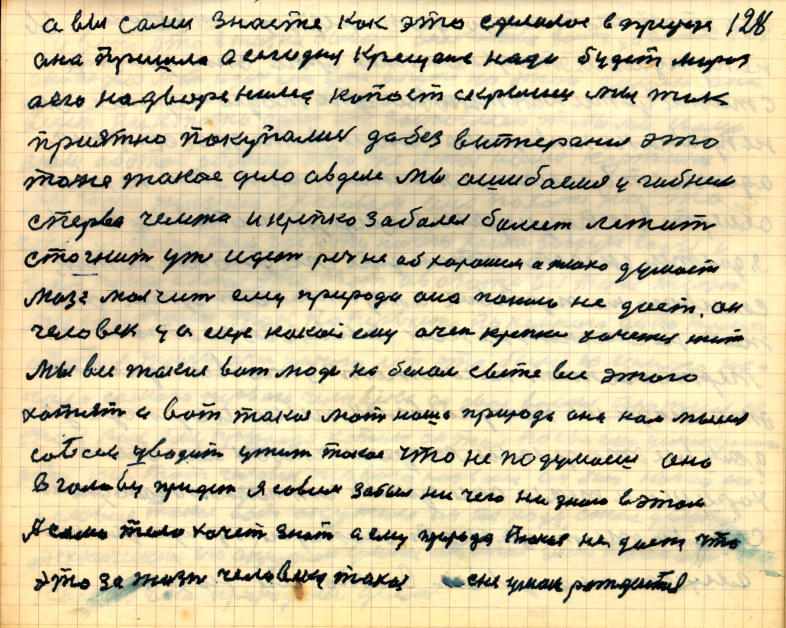 а вы сами знаете как это сделалос в природе 128
она пришла а сегодня Крещене надо будет мороз
а его на дворе нима копост мы так
приятно покупалис да без витирания это
тоже такое дело авделе мы ашибаемся и гибнем
сперва чемта и крепко забалел балеет лежит
стогнит уже идет реч не аб харошем а плохо думает
мозг молчит ему природа она покою не дает. он
человек у а еще какой ему очен крепка хочется жит
мы все такие вот люди на белом свете все этого
хотят а вот такая мат наша природа она нас мысля
совсем уводит ужит такое что не подумаеш оно
в голову придет я совсем забыл ни чего не знаю в этом
А само тело хочет знат а ему природа не дает что
это за жизн человека такая рождается